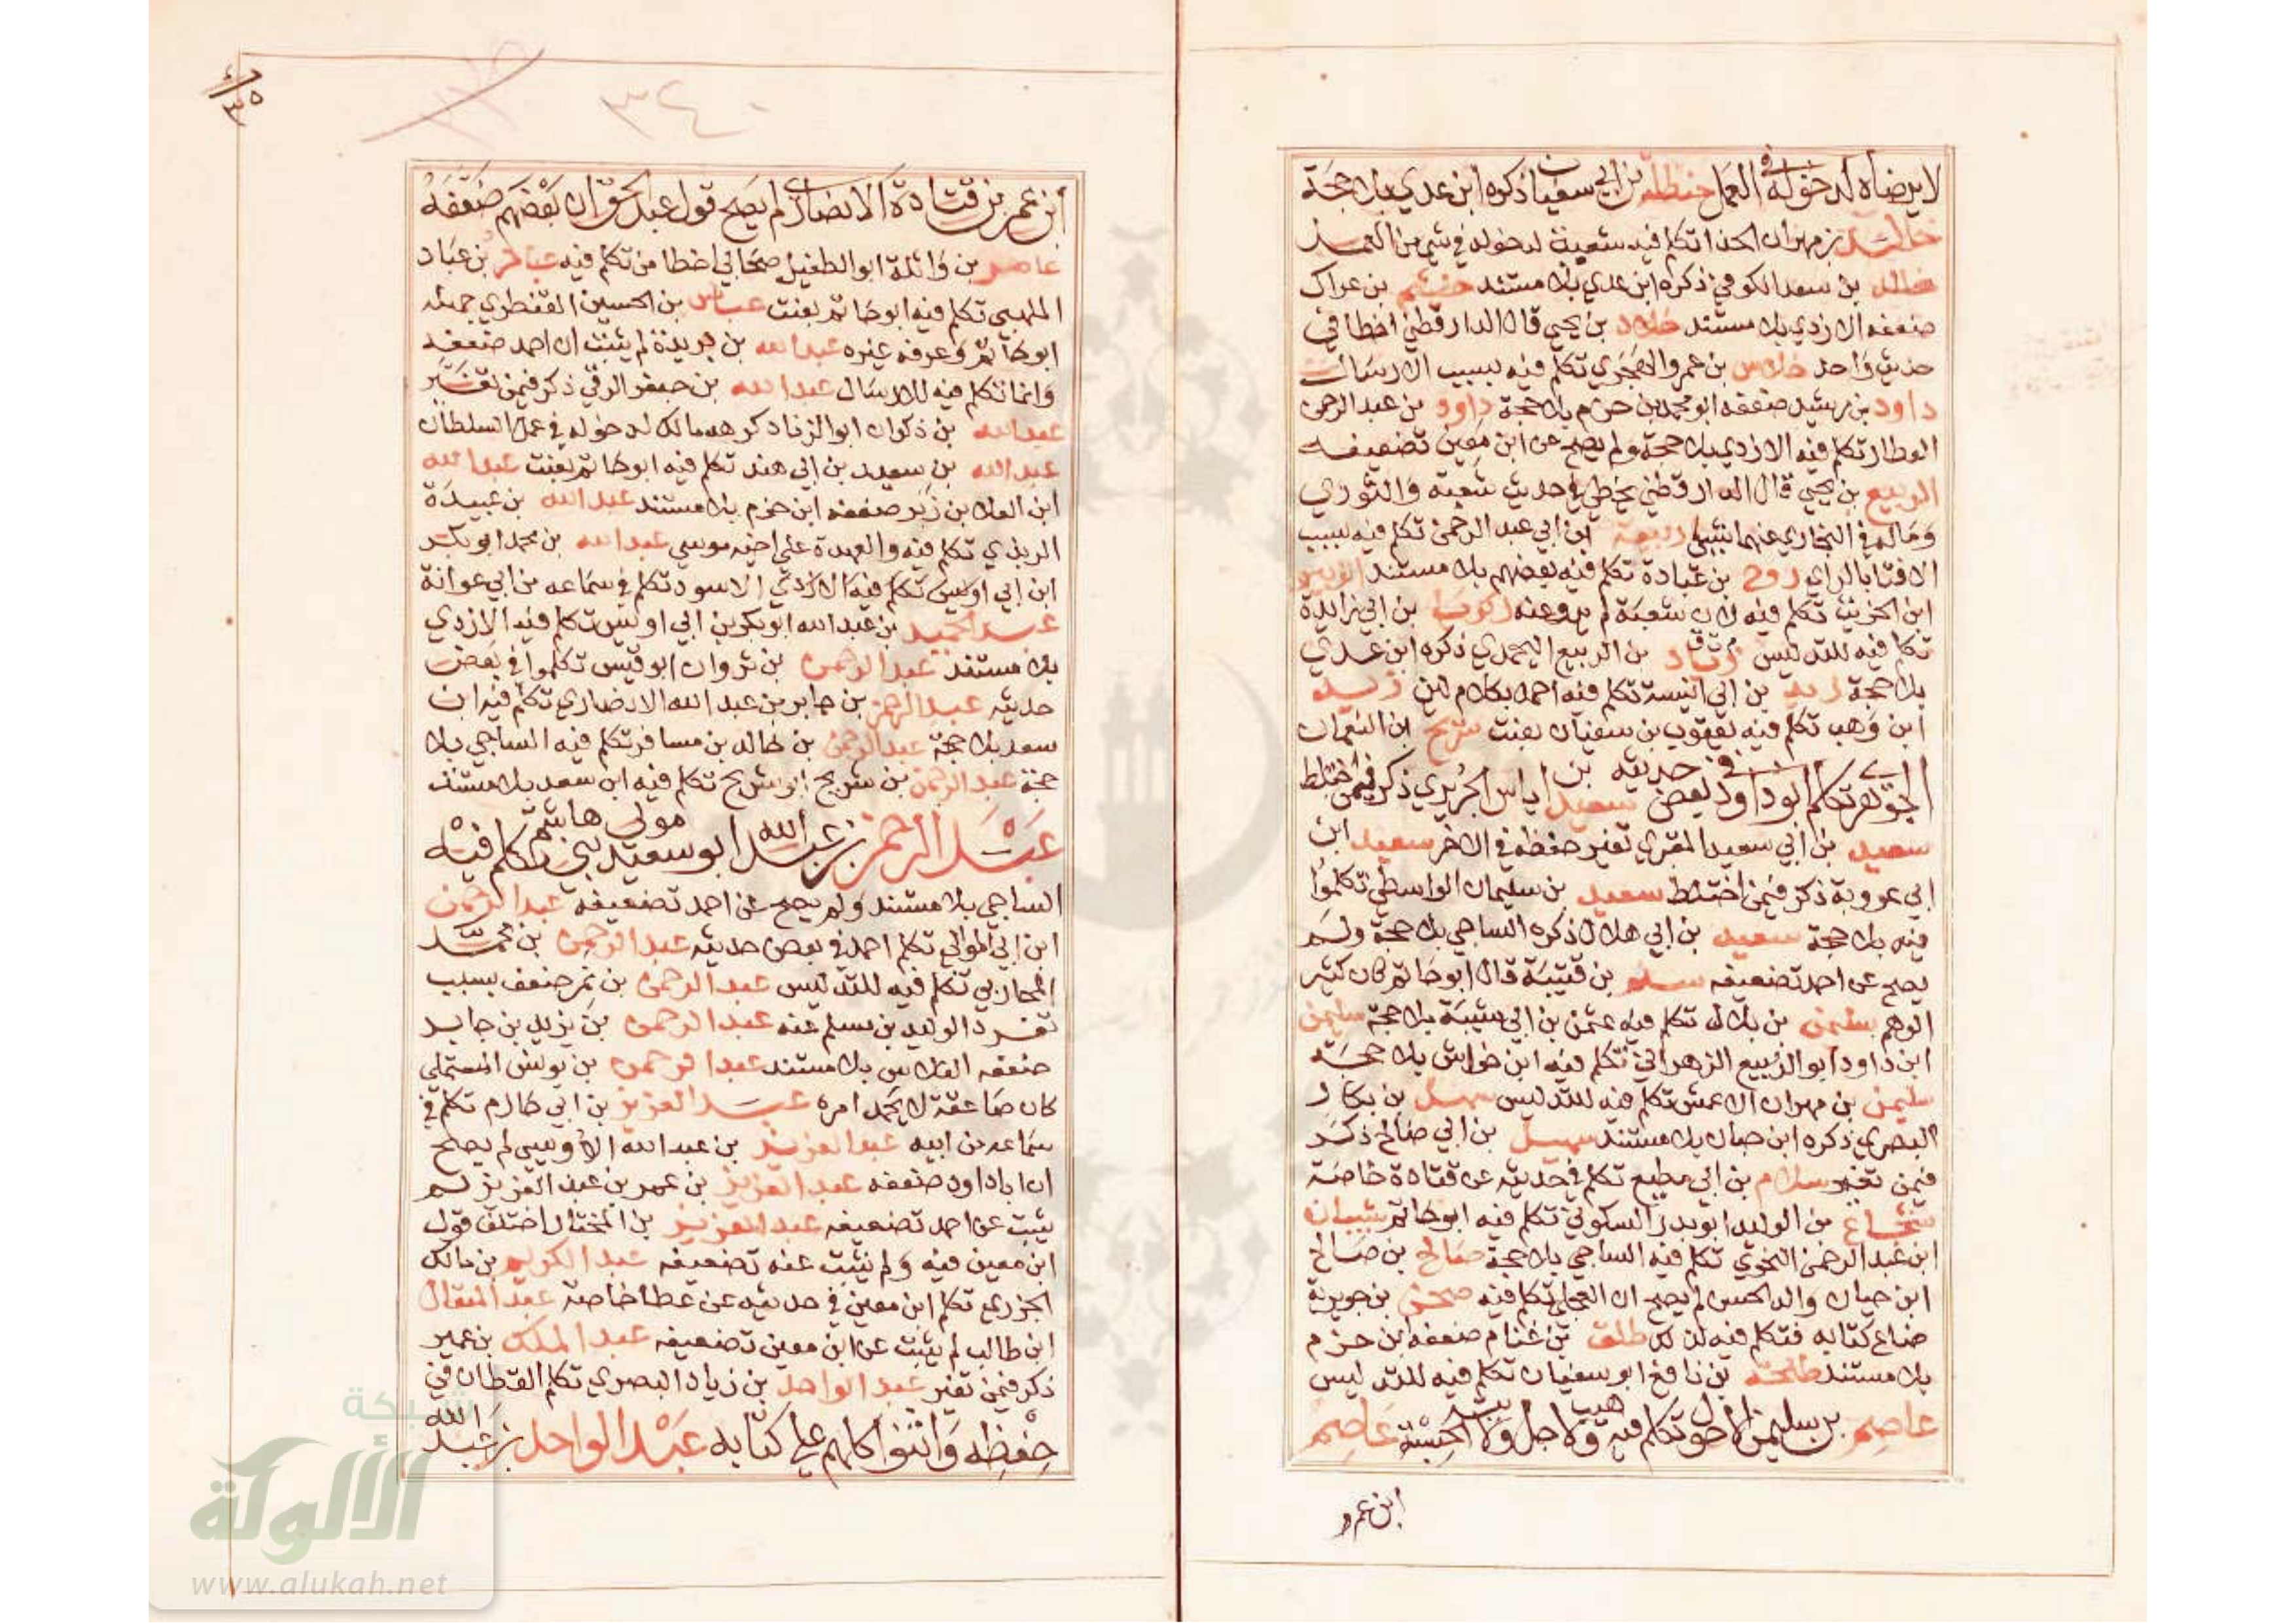 لا يرضاه لدخوله في العمل حنظلة بن ابي سفيان ذكره ابن عدي بلا حجة
خالد بن مهران الحذا تكلم فيه شعبة لدخوله في شي من العمل
خالد بن سعد الكوفي ذكره ابن عدي بلا مستند خثيم بن عراك
ضعفه الازدي بلا مستند خلاد بن يحيى قال الدارقطني اخطا في
حديث واحد خلاس بن عمرو الهجري تكلم فيه بسبب الارسال
داود بن رشيد ضعفه ابو محمد بن حزم بلا حجة داود بن عبد الرحمن
العطار تكلم فيه الازدي بلا حجة ولم يصح عن ابن معين تضعيفه
الربيع بن يحيى قال الدارقطني يخطي في حديث شعبة والثوري
وماله في البخاري عنهما شي ربيعة ابن ابي عبد الرحمن تكلم فيه بسبب
الافتا بالراي روح بن عبادة تكلم فيه بعضهم بلا مستند الزبير
ابن الخريت تكلم فيه لان شعبة لم يرو عنه زكريا بن ابي زايدة
تكلم فيه للتدليس زياد بن الربيع اليحمدي ذكره ابن عدي
بلا حجة زيد بن ابي انيسة تكلم فيه احمد بكلام لين زيد
ابن وهب تكلم فيه يعقوب بن سفيان بعنت سريج ابن النعمان
الجوهري تكلم ابو داود في بعض حديثه سعيد بن اياس الجريري ذكر فيمن اختلط
سعيد بن ابي سعيد المقبري تغير حفظه في الاخر سعيد ابن
ابي عروبة ذكر فيمن اختلط سعيد بن سليمان الواسطي تكلموا
فيه بلا حجة سعيد بن ابي هلال ذكره الساجي بلا حجة ولم
يصح عن احمد تضعيفه سلم بن قتيبة قال ابو حاتم كان كثير
الوهم سليمن بن بلال تكلم فيه عثمن بن ابي شيبة بلا حجة سليمن
ابن داود ابو الربيع الزهراني تكلم فيه ابن خراش بلا حجة
سليمن بن مهران الاعمش تكلم فيه للتدليس سهل بن بكار
البصري ذكره ابن حبان بلا مستند سهيل بن ابي صالح ذكر
فيمن تغير سلام بن ابي مطيع تكلم في حديثه عن قتادة خاصة
شجاع بن الوليد ابو بدر السكوني تكلم فيه ابو حاتم شيبان
ابن عبد الرحمن النحوي تكلم فيه الساجي بلا حجة صالح بن صالح
ابن حيان والد الحسن لم يصح ان العجلي تكلم فيه صخر بن جويرية
ضاع كتابه فتكلم فيه لذلك طلق بن غنام ضعفه ابن حزم
بلا مستند طلحة بن نافع ابو سفيان تكلم فيه للتدليس
عاصم بن سليمن الاحول تكلم فيه وهيب ولاجل ولاية الحسبة عاصم
ابن عمر
٣٤٠
ابن عمر بن قتادة الانصاري لم يصح قول عبد الحق ان بعضهم ضعفه
عامر بن واثلة ابو الطفيل صحابي اخطا من تكلم فيه عباد بن عباد
المهلبي تكلم فيه ابو حاتم بعنت عباس بن الحسين القنطري جهله
ابو حاتم وعرفه غيره عبد الله بن بريدة لم يثبت ان احمد ضعفه
وانما تكلم فيه للارسال عبد الله بن جعفر الرقي ذكر فيمن تغير
عبد الله بن ذكوان ابو الزناد كرهه مالك لدخوله في عمل السلطان
عبد الله بن سعيد بن ابي هند تكلم فيه ابو حاتم بعنت عبد الله
ابن العلا بن زبر ضعفه ابن حزم بلا مستند عبد الله بن عبيدة
الربذي تكلم فيه والعهدة على اخيه موسى عبد الله بن محمد ابو بكر
ابن ابي الاسود تكلم في سماعه من ابي عوانة
عبد الحميد بن عبد الله ابو بكر بن ابي اويس تكلم فيه الازدي
بلا مستند عبد الرحمن بن ثروان ابو قيس تكلموا في بعض
حديثه عبد الرحمن بن جابر بن عبد الله الانصاري تكلم فيه ابن
سعد بلا حجة عبد الرحمن بن خالد بن مسافر تكلم فيه الساجي بلا
حجة عبد الرحمن بن شريح ابو شريح تكلم فيه ابن سعد بلا مستند
عبد الرحمن بن عبد الله ابو سعيد مولى بني هاشم تكلم فيه
الساجي بلا مستند ولم يصح عن احمد تضعيفه عبد الرحمن
ابن ابي الموالي تكلم احمد في بعض حديثه عبد الرحمن بن محمد
المحاربي تكلم فيه للتدليس عبد الرحمن بن نمر ضعف بسبب
تفرد الوليد بن مسلم عنه عبد الرحمن بن يزيد بن جابر
ضعفه الفلاس بلا مستند عبد الرحمن بن يونس المستملي
كان صاعقة لا يحمد امره عبد العزيز بن ابي حازم تكلم في
سماعه من ابيه عبد العزيز بن عبد الله الاويسي لم يصح
ان ابا داود ضعفه عبد العزيز بن عمر بن عبد العزيز لم
يثبت عن احمد تضعيفه عبد العزيز بن المختار اختلف قول
ابن معين فيه ولم يثبت عنه تضعيفه عبد الكريم بن مالك
الجزري تكلم ابن معين في حديثه عن عطا خاصة عبد المتعال
ابن طالب لم يثبت عن ابن معين تضعيفه عبد الملك بن عمير
ذكر فيمن تغير عبد الواحد بن زياد البصري تكلم القطان في
حفظه واثنوا كلهم على كتابه عبد الواحد بن عبد الله
شبكة
الألوكة
www.alukah.net